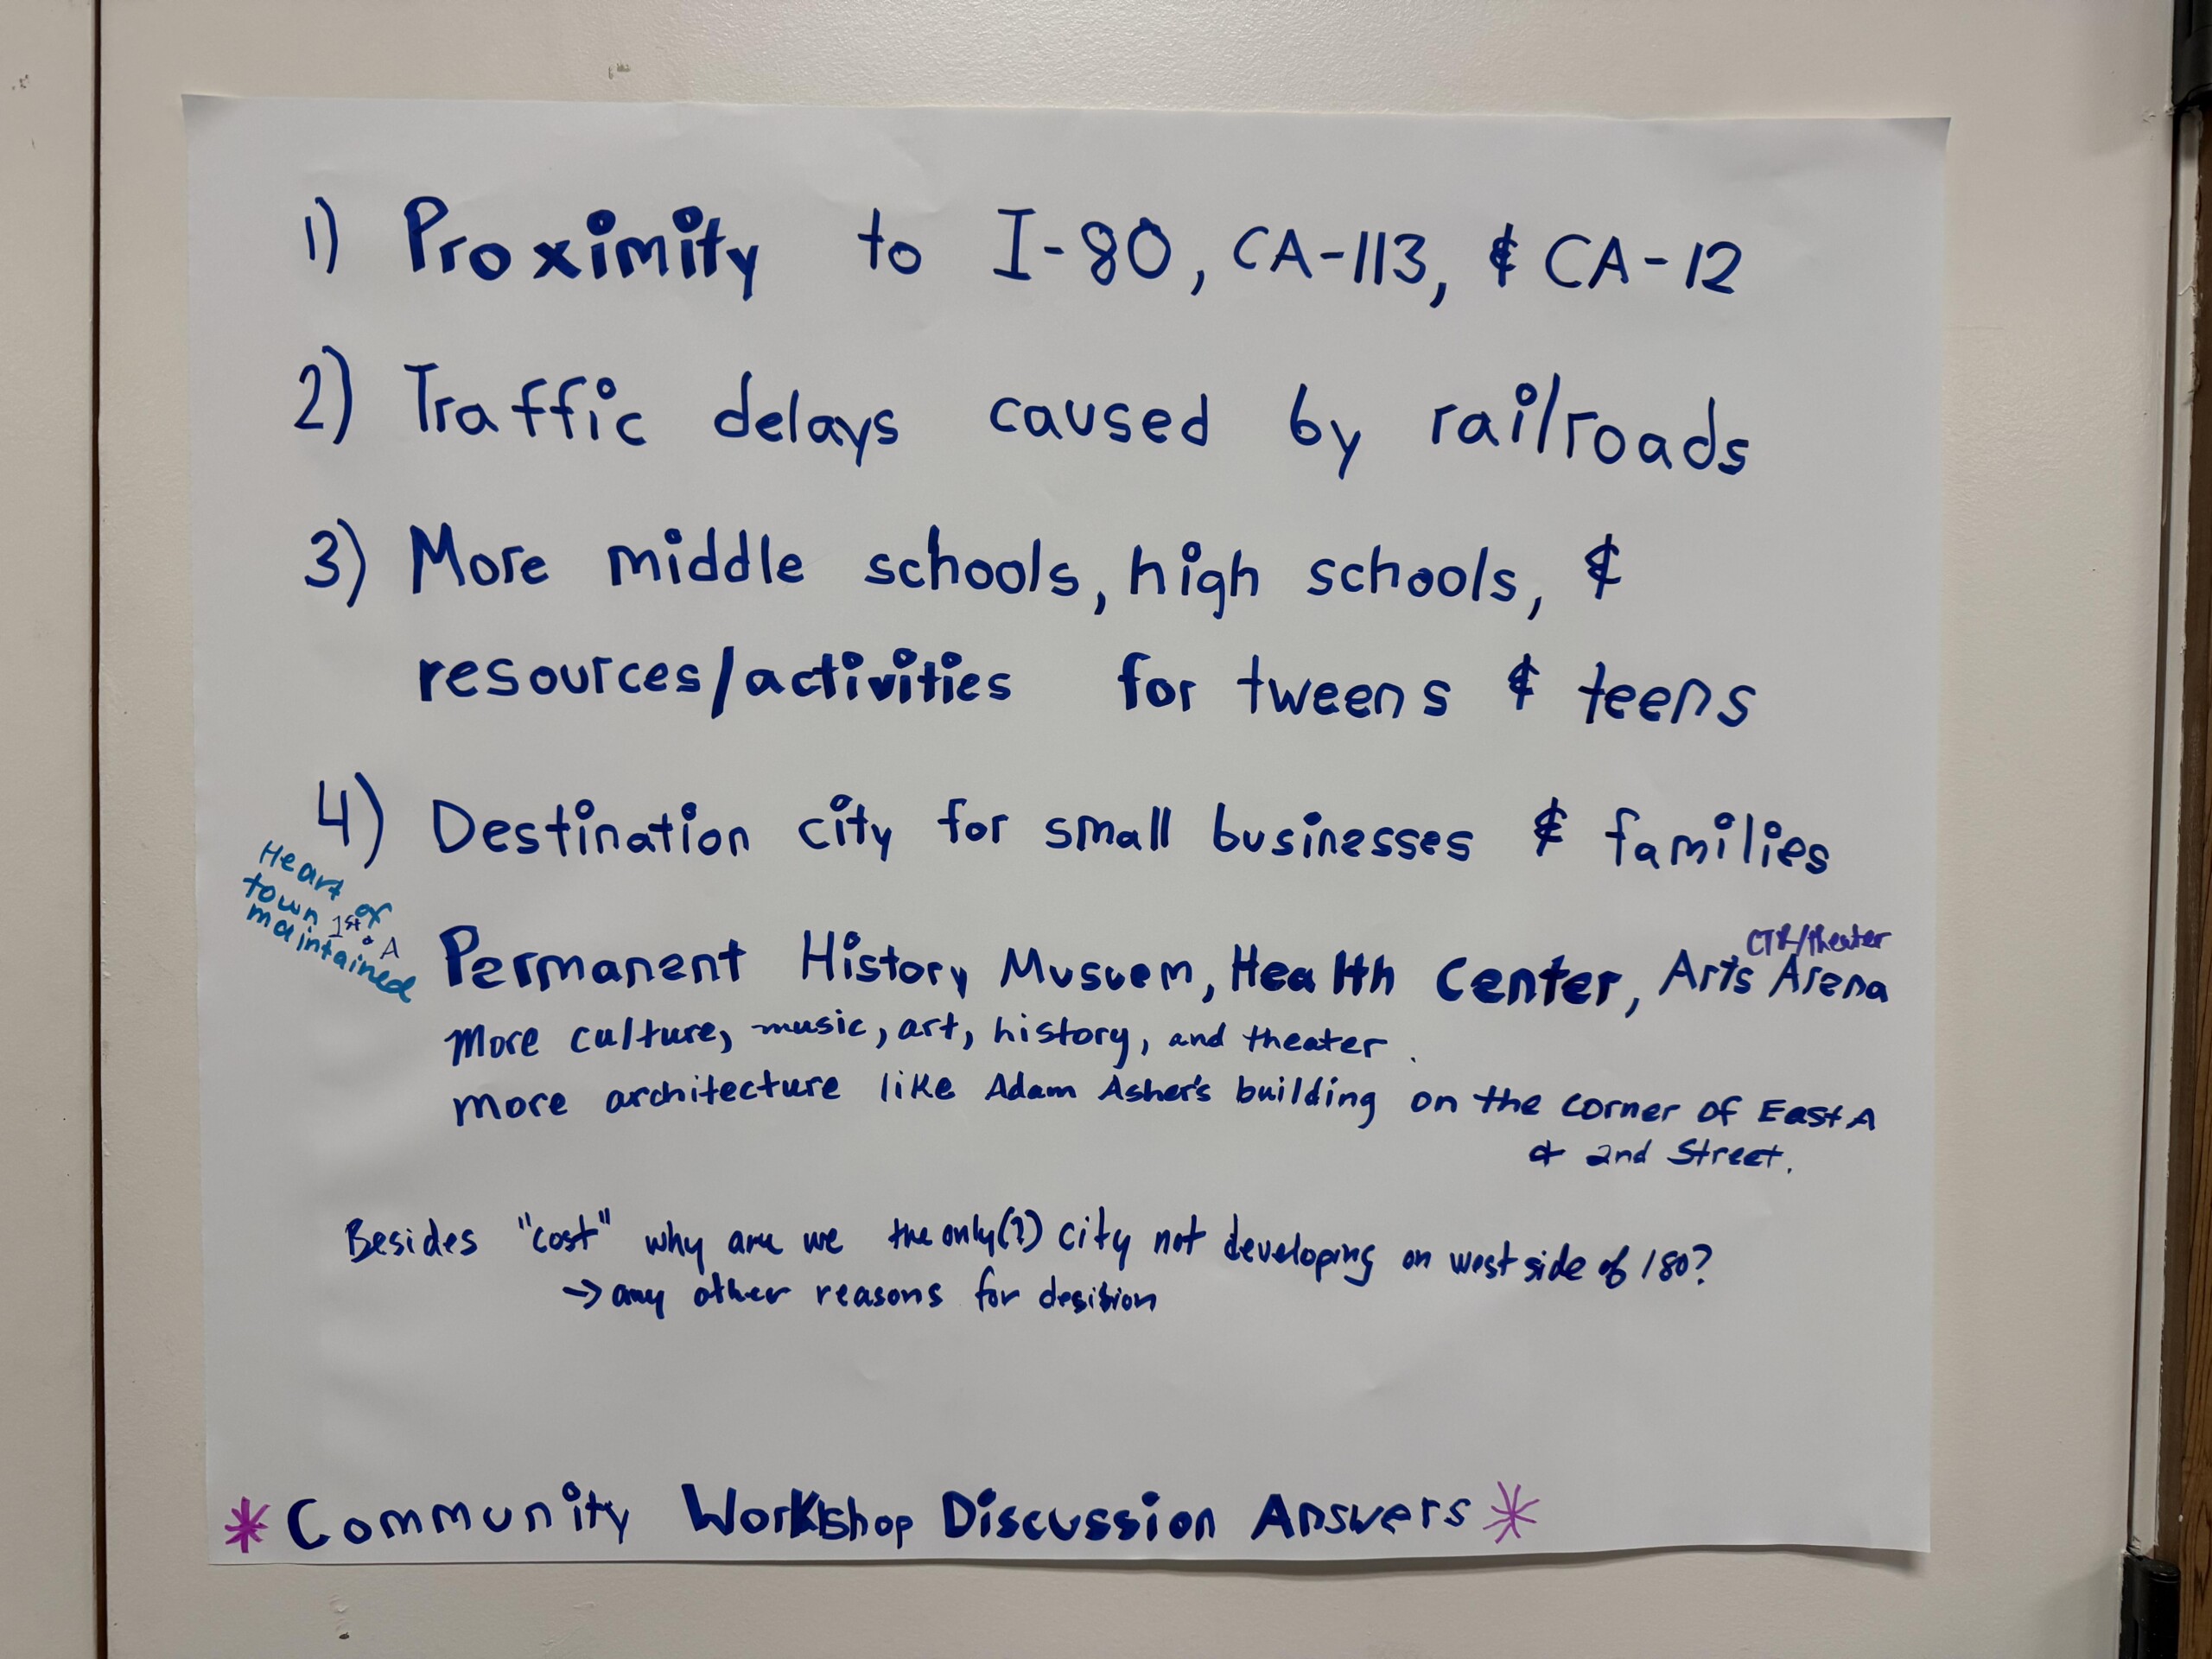 1) Proximity to I-80, CA-113, & CA-12
2) Traffic delays caused by railroads
3) More middle schools, high schools, &
resources/activities for tweens & teens
4) Destination city for small businesses & families
Heart of
town 1st & A
maintained
CTR/theater
Permanent History Musuem, Health Center, Arts Arena
More culture, music, art, history, and theater.
more architecture like Adam Asher's building on the corner of East A
& 2nd Street.
Besides "cost" why are we the only(?) city not developing on west side of I80?
→ any other reasons for desition
* Community Workshop Discussion Answers *